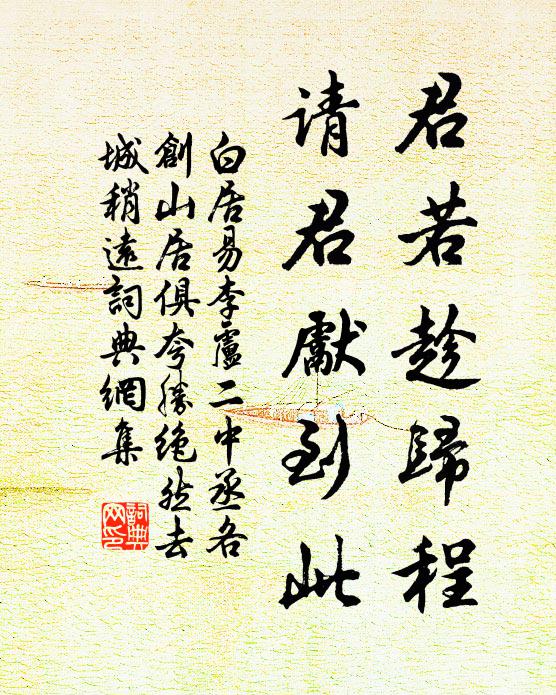 君若趁歸程
请君獻到此
白居易李盧二中丞各
創山居俱夸勝絶然去
城稍遠詞典網集
詞典
网印